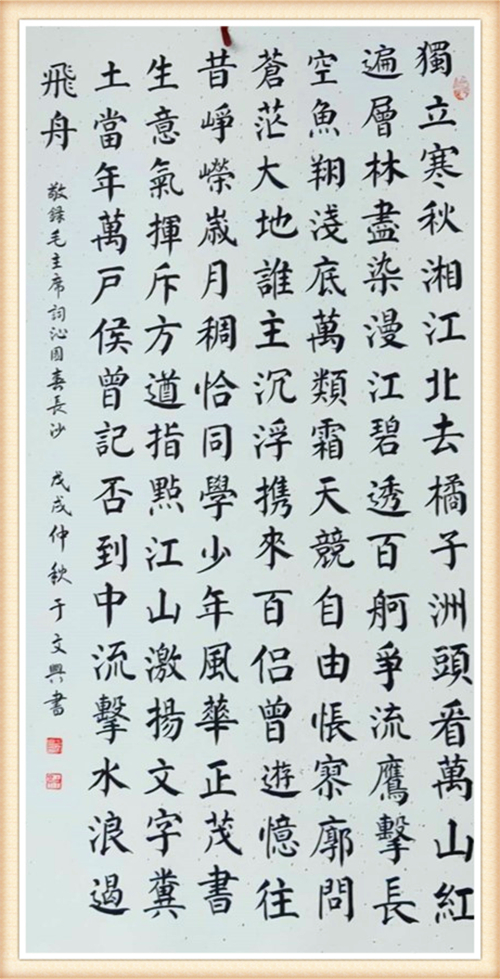 獨立寒秋湘江北去橘子洲頭看萬山紅
遍層林盡染漫江碧透百舸爭流鷹擊長
空魚翔淺底萬類霜天競自由悵寥廓問
蒼茫大地誰主沉浮携來百侶曾遊憶往
昔崢嶸歲月稠恰同學少年風華正茂書
生意氣揮斥方遒指點江山激揚文字糞
土當年萬戶侯曾記否到中流擊水浪遏
飛舟 敬錄毛主席詞沁園春長沙 戊戌仲秋于文興書